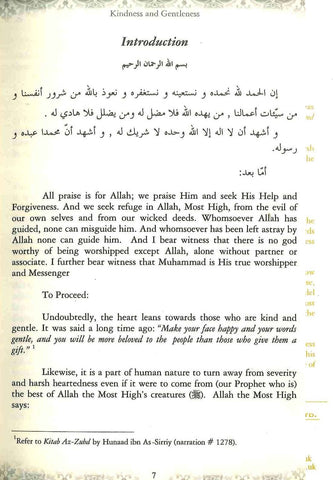 Kindness and Gentleness
Introduction
بسم الله الرحمان الرحيم
إن الحمد لله نحمده و نستعينه و نستغفره و نعوذ بالله من شرور أنفسنا و
من سيّئات أعمالنا , من يهده الله فلا مضل له ومن يضلل فلا هادي له .
و أشهد أن لا اله إلا الله وحده لا شريك له , و أشهد أن محمدا عبده و
رسوله.
أمّا بعد:
All praise is for Allah; we praise Him and seek His Help and
Forgiveness. And we seek refuge in Allah, Most High, from the evil of
our own selves and from our wicked deeds. Whomsoever Allah has
guided, none can misguide him. And whomsoever has been left astray by
Allah none can guide him.  And I bear witness that there is no god
worthy of being worshipped except Allah, alone without partner or
associate. I further bear witness that Muhammad is His true worshipper
and Messenger
To Proceed:
Undoubtedly, the heart leans towards those who are kind and
gentle. It was said a long time ago: “Make your face happy and your words
gentle, and you will be more beloved to the people than those who give them a
gift.” 1
Likewise, it is a part of human nature to turn away from severity
and harsh heartedness even if it were to come from (our Prophet who is)
the best of Allah the Most High's creatures (ﷺ). Allah the Most High
says:
1Refer to Kitab Az-Zuhd by Hunaad ibn As-Sirriy (narration # 1278).
7